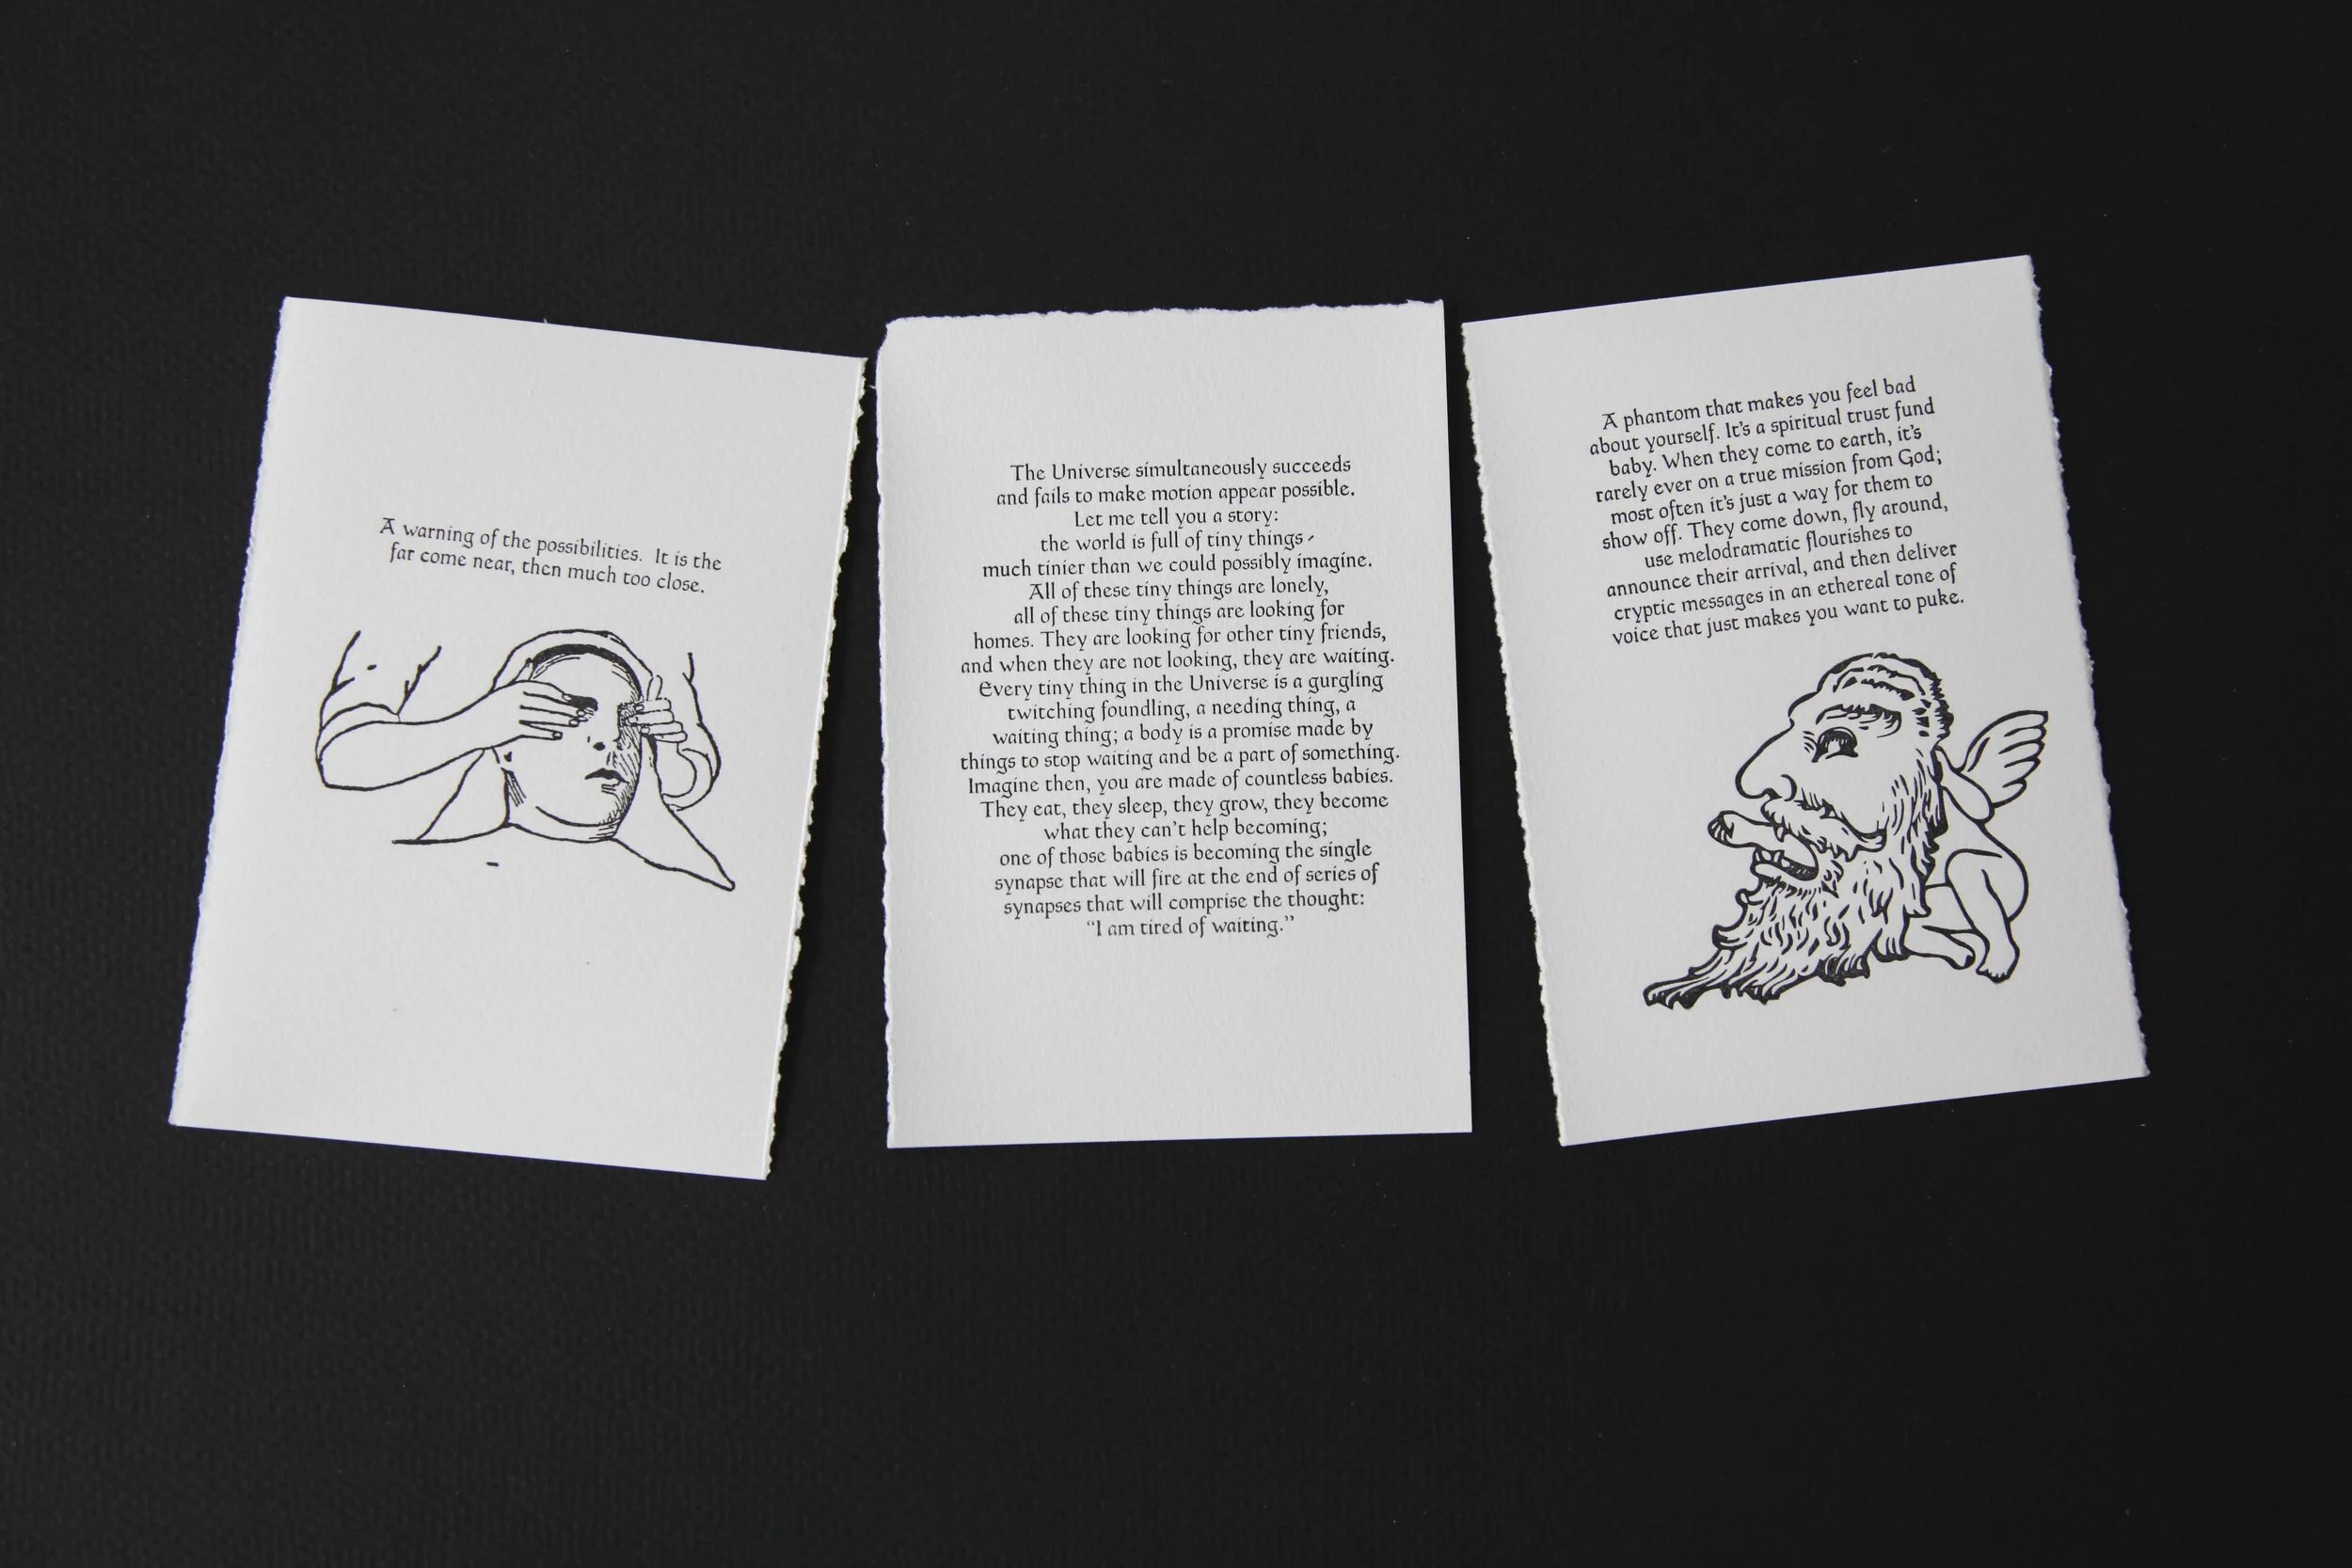 A warning of the possibilities. It is the
far come near, then much too close.
The Universe simultaneously succeeds
and fails to make motion appear possible.
Let me tell you a story:
the world is full of tiny things -
much tinier than we could possibly imagine.
All of these tiny things are lonely,
all of these tiny things are looking for
homes. They are looking for other tiny friends,
and when they are not looking, they are waiting.
Every tiny thing in the Universe is a gurgling
twitching foundling, a needing thing, a
waiting thing; a body is a promise made by
things to stop waiting and be a part of something.
Imagine then, you are made of countless babies.
They eat, they sleep, they grow, they become
what they can't help becoming;
one of those babies is becoming the single
synapse that will fire at the end of series of
synapses that will comprise the thought:
“I am tired of waiting.”
A phantom that makes you feel bad
about yourself. It's a spiritual trust fund
baby. When they come to earth, it's
rarely ever on a true mission from God;
most often it's just a way for them to
show off. They come down, fly around,
use melodramatic flourishes to
announce their arrival, and then deliver
cryptic messages in an ethereal tone of
voice that just makes you want to puke.